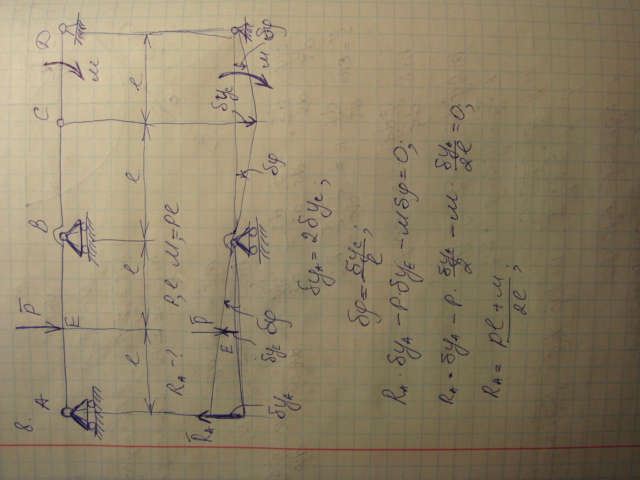 8. A P̄ E B C M D
ℓ ℓ ℓ ℓ
R_A - ? P, ℓ M = Pℓ
R̄_A P̄ E δy_C M δφ
δy_A δy_E δφ δφ
δy_A = 2δy_C;
δφ = δy_C/ℓ;
R_A · δy_A - P · δy_E - Mδφ = 0;
R_A · δy_A - P · δy_A/2 - M · δy_A/2ℓ = 0;
R_A = (Pℓ + M)/2ℓ;